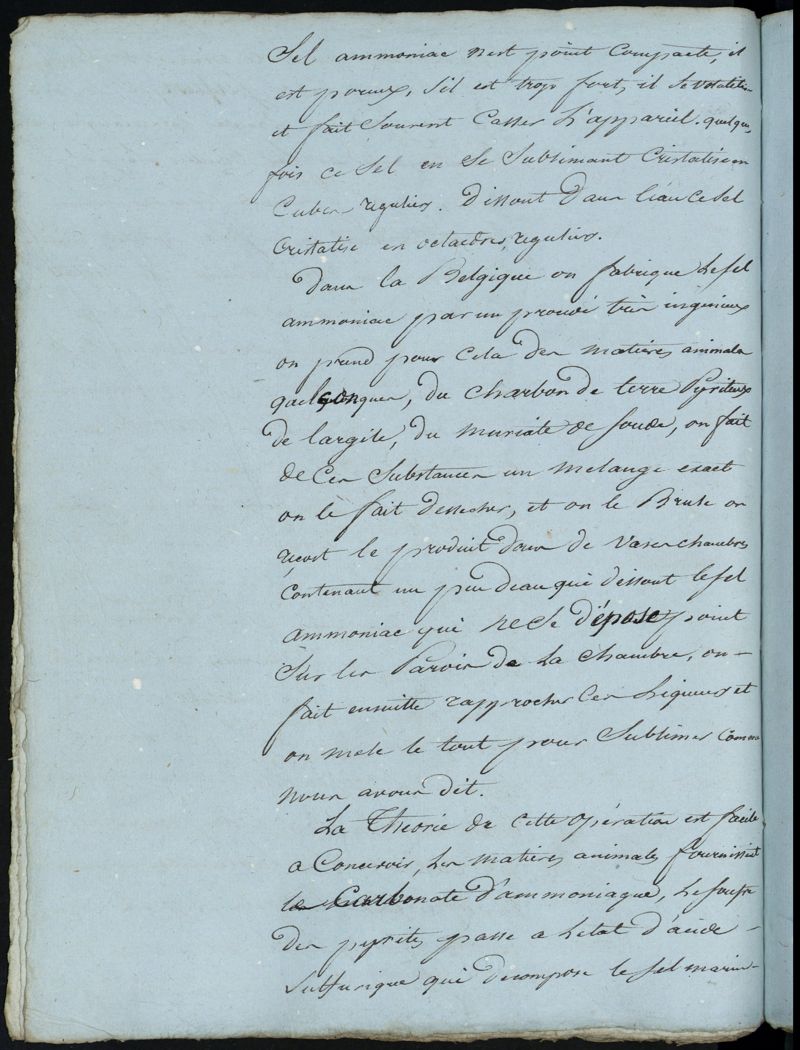 Sel ammoniac n'est point Compacte, il
est poreux, s'il est trop fort, il se volatilise
et fait Souvent Casser L'appareil. quelque
fois ce Sel en Se Sublimant Cristalise en
Cubes reguliers. Dissout Dans L'eau ce Sel
Cristalise en octaedres reguliers.
Dans la Belgique on fabrique Le Sel
ammoniac par un procédé très ingenieux
on prend pour Cela des matières animales
quelconques, du charbon de terre Pyriteux
de l'argile, du muriate de Soude, on fait
de Ces Substances un melange exact
on le fait Dessecher, et on le Brule on
reçoit le produit dans de vases chambres
contenant un peu d'eau qui dissout le Sel
ammoniac qui ne Se dépose point
Sur les Parois de La chambre, on
fait ensuitte rapprocher Ces Liqueurs et
on mele le tout pour Sublimer Comme
nous avons dit.
La Théorie de cette opération est facile
a Concevoir, Les matières animales fournissent
le Carbonate d'ammoniaque, Le Soufre
des pyrites passe a L'etat d'acide
Sulfurique qui decompose le Sel marin